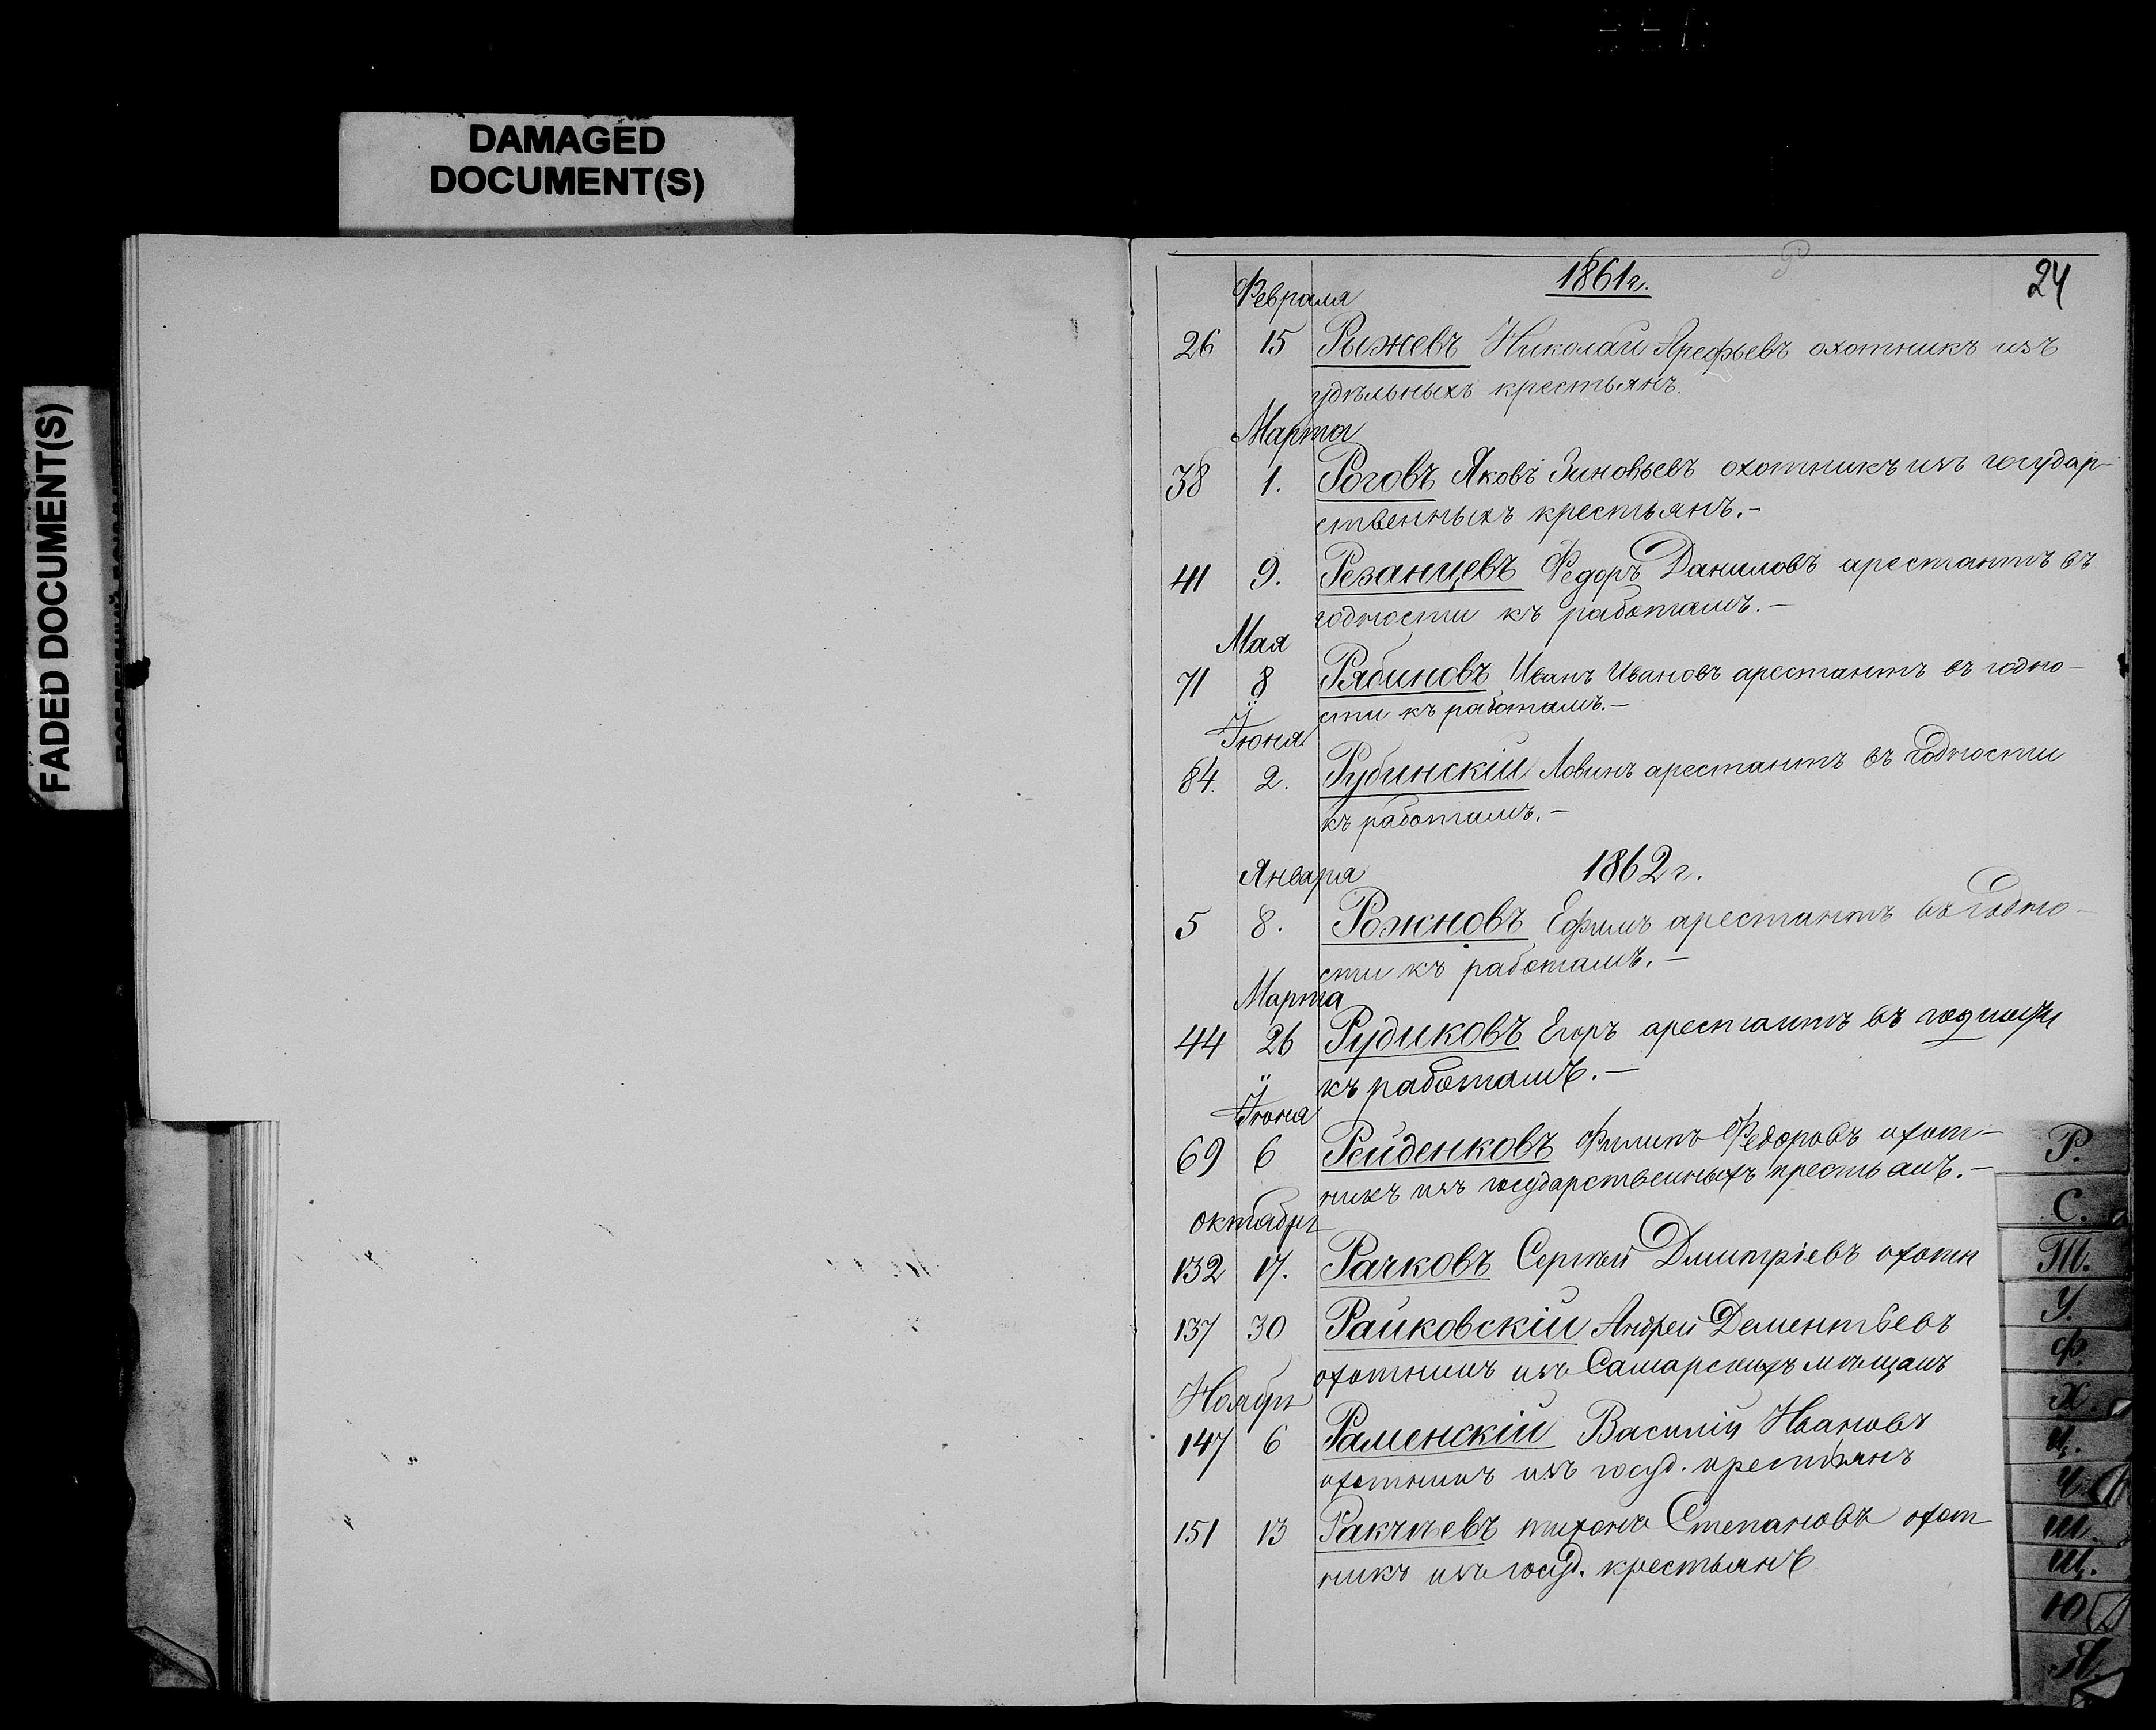 DAMAGED
DOCUMENT(S)
FADED DOCUMENT(S)
24
1861 г.
Февраля
26 15 Рыжевъ Николай Арефьевъ охотникъ изъ
удѣльныхъ крестьянъ.
Марта
38 1. Роговъ Яковъ Зиновьевъ охотникъ изъ государ-
ственныхъ крестьянъ.-
41 9. Резанцевъ Федоръ Даниловъ арестантъ въ
годности къ работамъ.-
Мая
71 8 Рябиновъ Иванъ Ивановъ арестантъ въ годно-
сти къ работамъ.-
Іюня
84. 2. Рубинскій арестантъ въ годности
къ работамъ.-
Января 1862 г.
5 8. Рожновъ Ефимъ арестантъ въ годно-
сти къ работамъ.-
Марта
44 26 Рудиковъ Егоръ арестантъ въ годности
къ работамъ.-
Іюня
69 6 Рейденковъ Филипъ Федоровъ охот-
никъ изъ государственныхъ крестьянъ.-
октября
132 17. Рачковъ Сергѣй Дмитріевъ охотн
137 30 Райковскій Андрей Дементьевъ
охотникъ изъ Самарскихъ мѣщанъ
Ноября
147 6 Раменскій Василій Ивановъ
охотникъ изъ госуд. крестьянъ
151 13 тихонъ Степановъ охот
никъ изъ госуд. крестьянъ
Р.
С.
Т.
У.
Ф.
Х.
Ц.
Ч.
Ш.
Щ.
Ю
Я